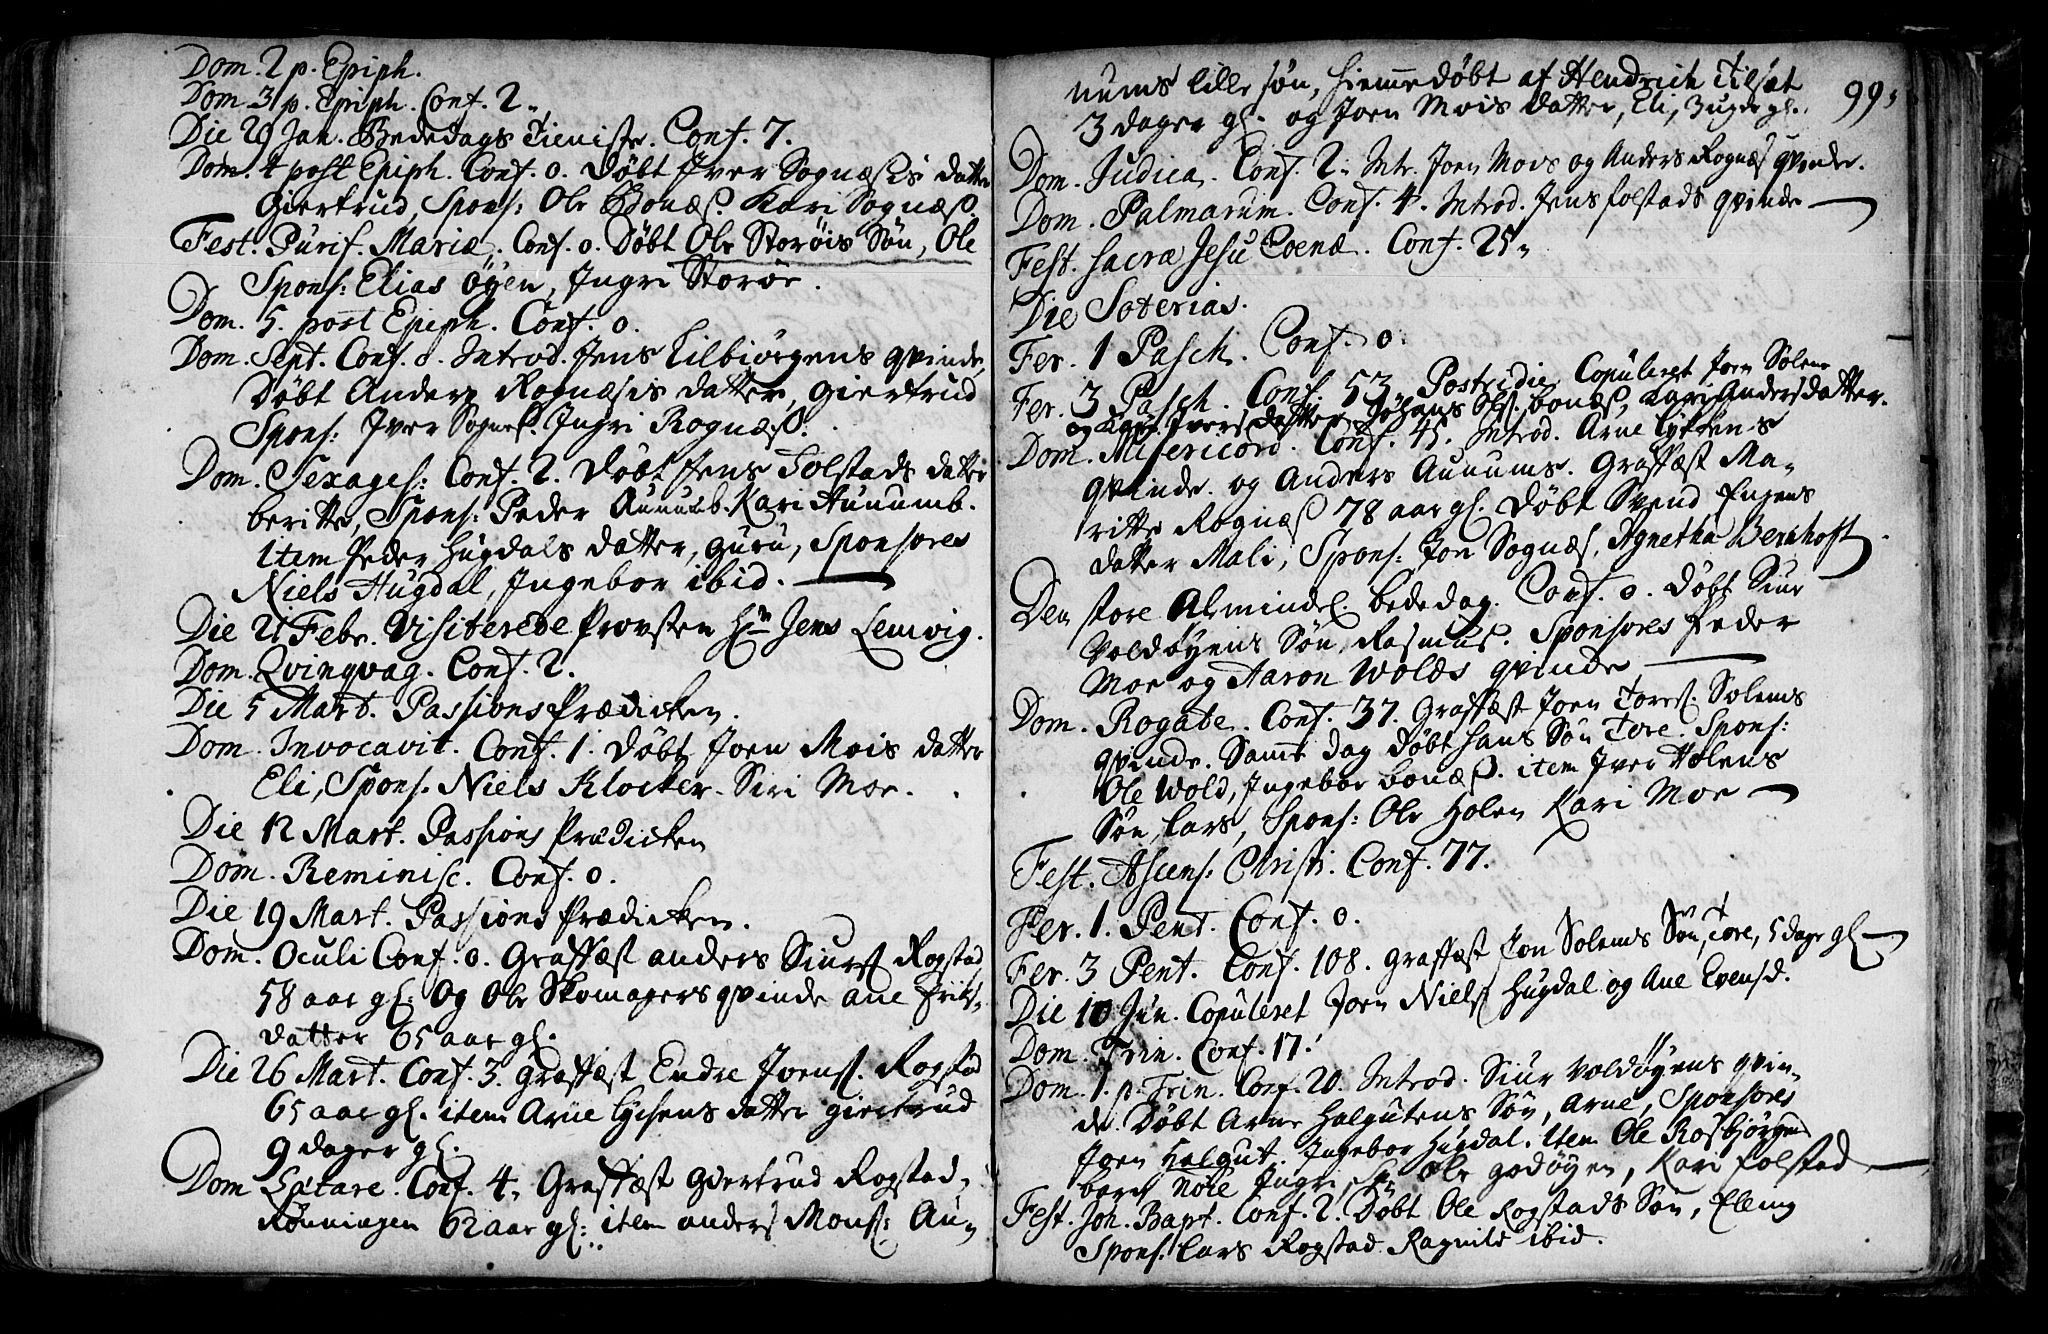 Dom. 2 p. Epiph.
Dom. 3 p. Epiph. Conf. 2.
Die 29 Jan. Bededags Tieniste. Conf. 7.
Dom. 4 post Epiph. Conf. 0. Døbt Iver Sognæsis datter
Giertrud, Spons: Ole Bonæs. Kari Sognæs.
Fest. Purif. Mariæ. Conf. 0. Døbt Ole Storøis Søn, Ole
Spons: Elias Øyen, Ingri Storøe.
Dom. 5. post Epiph. Conf. 0.
Dom. Sept. Conf. 0. Introd. Jens Lilbiørgens qvinde,
Døbt Anders Rognæsis datter, Giertrud
Spons: Iver Sognes. Ingri Rognæs.
Dom. Sexages: Conf. 2. Døbt Jens Solstads datter
beritte, Spons: Peder Aunumb. Kari Aunumb.
item Peder Hugdals datter, Guru, Sponsores
Niels Hugdal, Ingebor ibid.
Die 21 Febr. Visiterede Provsten Hr. Jens Lemvig.
Dom. Qvinqvag. Conf. 2.
Die 5 Mart. Passions Prædicken.
Dom. Invocavit. Conf. 1. Døbt Joen Mois datter
Eli, Spons. Niels Klocker. Siri Moe.
Die 12 Mart. Passions Prædicken
Dom. Reminisc. Conf. 0.
Die 19 Mart. Passions Prædicken.
Dom. Oculi Conf. 0. Graffæst anders Siurs. Rogstad
58 aar gl. Og Ole Skomagers qvinde ane Eriks-
datter 65 aar gl.
Die 26 Mart. Conf. 3. Graffæst Endre Joens. Rogstad
65 aar gl. item Arne Lychens datter giertrud
9 dager gl.
Dom Lætare. Conf. 4. Graffæst Giertrud Rogstad-
Rønningen 62 aar gl: item anders Mons: Au-
nums lille søn, hiemmedøbt af Hendrich Tilset 99.
3 dager gl. og Joen Mois datter, Eli, 3 uger gl.
Dom. Judica. Conf. 2. Intr. Joen Mois og Anders Rognæs qvinde.
Dom. Palmarum. Conf. 4. Introd. Jens folstads qvinde
Fest. Sacræ Jesu Coenæ. Conf. 25.
Die Soterias.
Fer. 1 Pasch. Conf. 0.
Fer. 3 Pasch. Conf. 53. Postridie Copuleret Joen Solem
og Kari Iversdatter, Johans Ols. bonæs, Kari Andersdatter.
Dom. Misericord. Conf. 45. Introd. Arne Lykkens
qvinde. og Anders Aunums. Graffæst Ma-
ritte Rognæs 78 aar gl. Døbt Svend Engens
datter Mali, Spons: Jon Sognæs, Agnetha Bernhoft.
Den store Almindel. bededag. Conf. 0. Døbt Siur
Voldøyens Søn, Rasmus. Sponsores Peder
Moe og Aaron Wolds qvinde
Dom. Rogate. Conf. 37. Graffæst Joen Tores. Solems
qvinde. Samme dag døbt hans Søn Tore. Spons:
Ole Wold, Ingebor bonæs. item Iver Holens
Søn, Lars, Spons: Ole Holen Kari Moe
Fest. Ascens: Christi. Conf. 77.
Fer. 1. Pent. Conf. 0.
Fer. 3 Pent. Conf. 108. Graffæst Jon Solems Søn, Tore, 5 dage gl
Die 10 Jun. Copuleret Joen Niels. Hugdal og Ane Evensd.
Dom. Trin. Conf. 17.
Dom. 1. p. Trin. Conf. 20. Introd. Siur Voldøyens qvin-
de. Døbt Arne Halgutens Søn, Arne, Sponsores
Joen Halgut. Ingebor Hugdal. Item Ole Rosbjørgens
Ole Godøyen, Kari folstad
Fest. Joh. Bapt. Conf. 2. Døbt Ole Rogstads Søn, Elling
Spons. Lars Rogstad. Ragnild ibid.